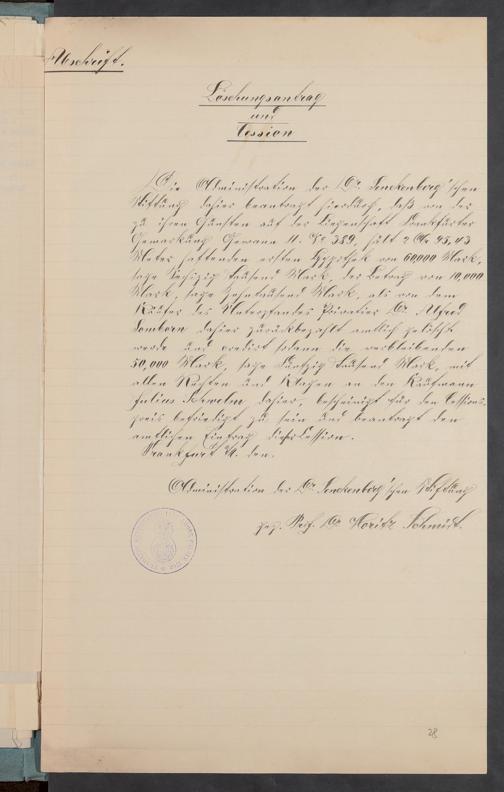 Abschrift.
Löschungsantrag
und
Cession
Die Administration der Dr. Senckenberg'schen
Stiftung dahier beantragt hierdurch, daß von der
zu ihren Gunsten auf der Liegenschaft Frankfurter
Gemarkung Gewann 11. No 389, hält 2 Ar 95,43
Meter haftenden ersten Hypothek von 60000 Mark,
sage Sechzig tausend Mark, der Betrag von 10,000
Mark, sage Zehntausend Mark, als von dem
Käufer des Unterpfandes Privatier Dr. Alfred
dahier zurückbezahlt amtlich gelöscht
werde und cedirt sodann die verbleibenden
50,000 Mark, sage Fünfzig tausend Mark, mit
allen Rechten und Klagen an den Kaufmann
Julius Schwelm dahier, bescheinigt für den Cessions-
preis befriedigt zu sein und beantragt den
amtlichen Eintrag dieser Cession.
Frankfurt a/M. den.
Administration der Dr. Senckenberg'schen Stiftung
gez. Prof. Dr. Moritz Schmidt.
28